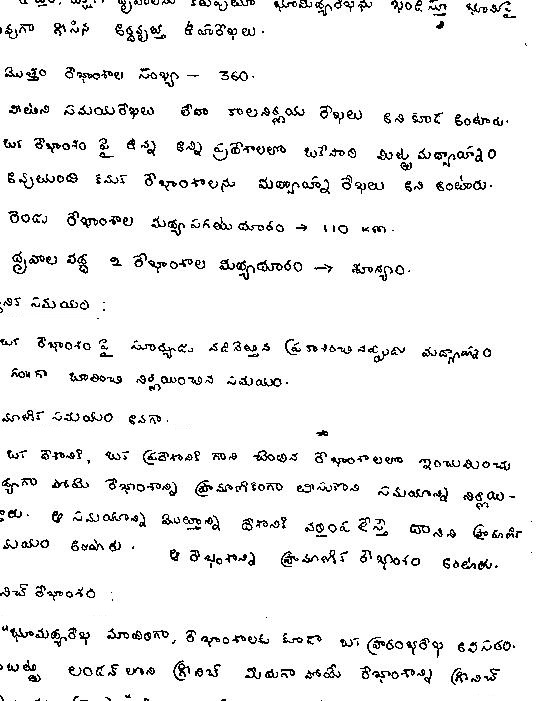 భూమధ్యరేఖను ఖండిస్తూ భూమిపై
గీసిన అర్ధవృత్త ఊహారేఖలు.
మొత్తం రేఖాంశాల సంఖ్య – 360.
వీటిని సమయరేఖలు లేదా కాలనిర్ణయ రేఖలు అని కూడ అంటారు.
ఒక రేఖాంశం పై ఉన్న అన్ని ప్రదేశాలలో ఒకేసారి మిట్ట మధ్యాహ్నం
అవుతుంది కనుక రేఖాంశాలను మధ్యాహ్న రేఖలు అని అంటారు.
రెండు రేఖాంశాల మధ్య సగటు దూరం → 110 km.
ధృవాల వద్ద 2 రేఖాంశాల మధ్యదూరం → శూన్యం.
సమయం :
ఒక రేఖాంశం పై సూర్యుడు నడినెత్తిన ప్రకాశించినప్పుడు మధ్యాహ్నం
గంటగా భావించి నిర్ణయించిన సమయం.
సమయం అనగా.
ఒక దేశానికి, ఒక ప్రదేశానికి గాని చెందిన రేఖాంశాలలో ఇంచుమించు
పోయే రేఖాంశాన్ని ప్రామాణికంగా తీసుకొని సమయాన్ని నిర్ణయి-
ఆ సమయాన్ని మొత్తాన్ని దేశానికి వర్తింప చేస్తే దానిని ప్రామాణిక
అంటారు. ఆ రేఖాంశాన్ని ప్రామాణిక రేఖాంశం అంటారు.
రేఖాంశం :
"భూమధ్యరేఖ మాదిరిగా, రేఖాంశాలకు కూడా ఒక ప్రారంభరేఖ అవసరం.
లండన్ లోని గ్రీనిచ్ మీదుగా పోయే రేఖాంశాన్ని గ్రీనిచ్